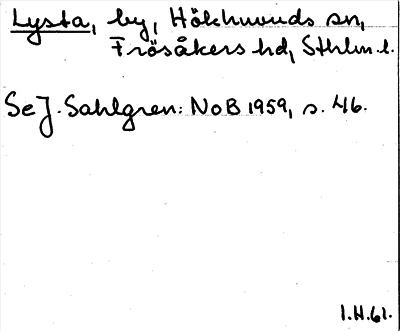 Lysta, by, Hökhuvuds sn,
Frösåkers hd, Sthlm.l.
Se J. Sahlgren: NoB 1959, s. 46.
I.H.61.